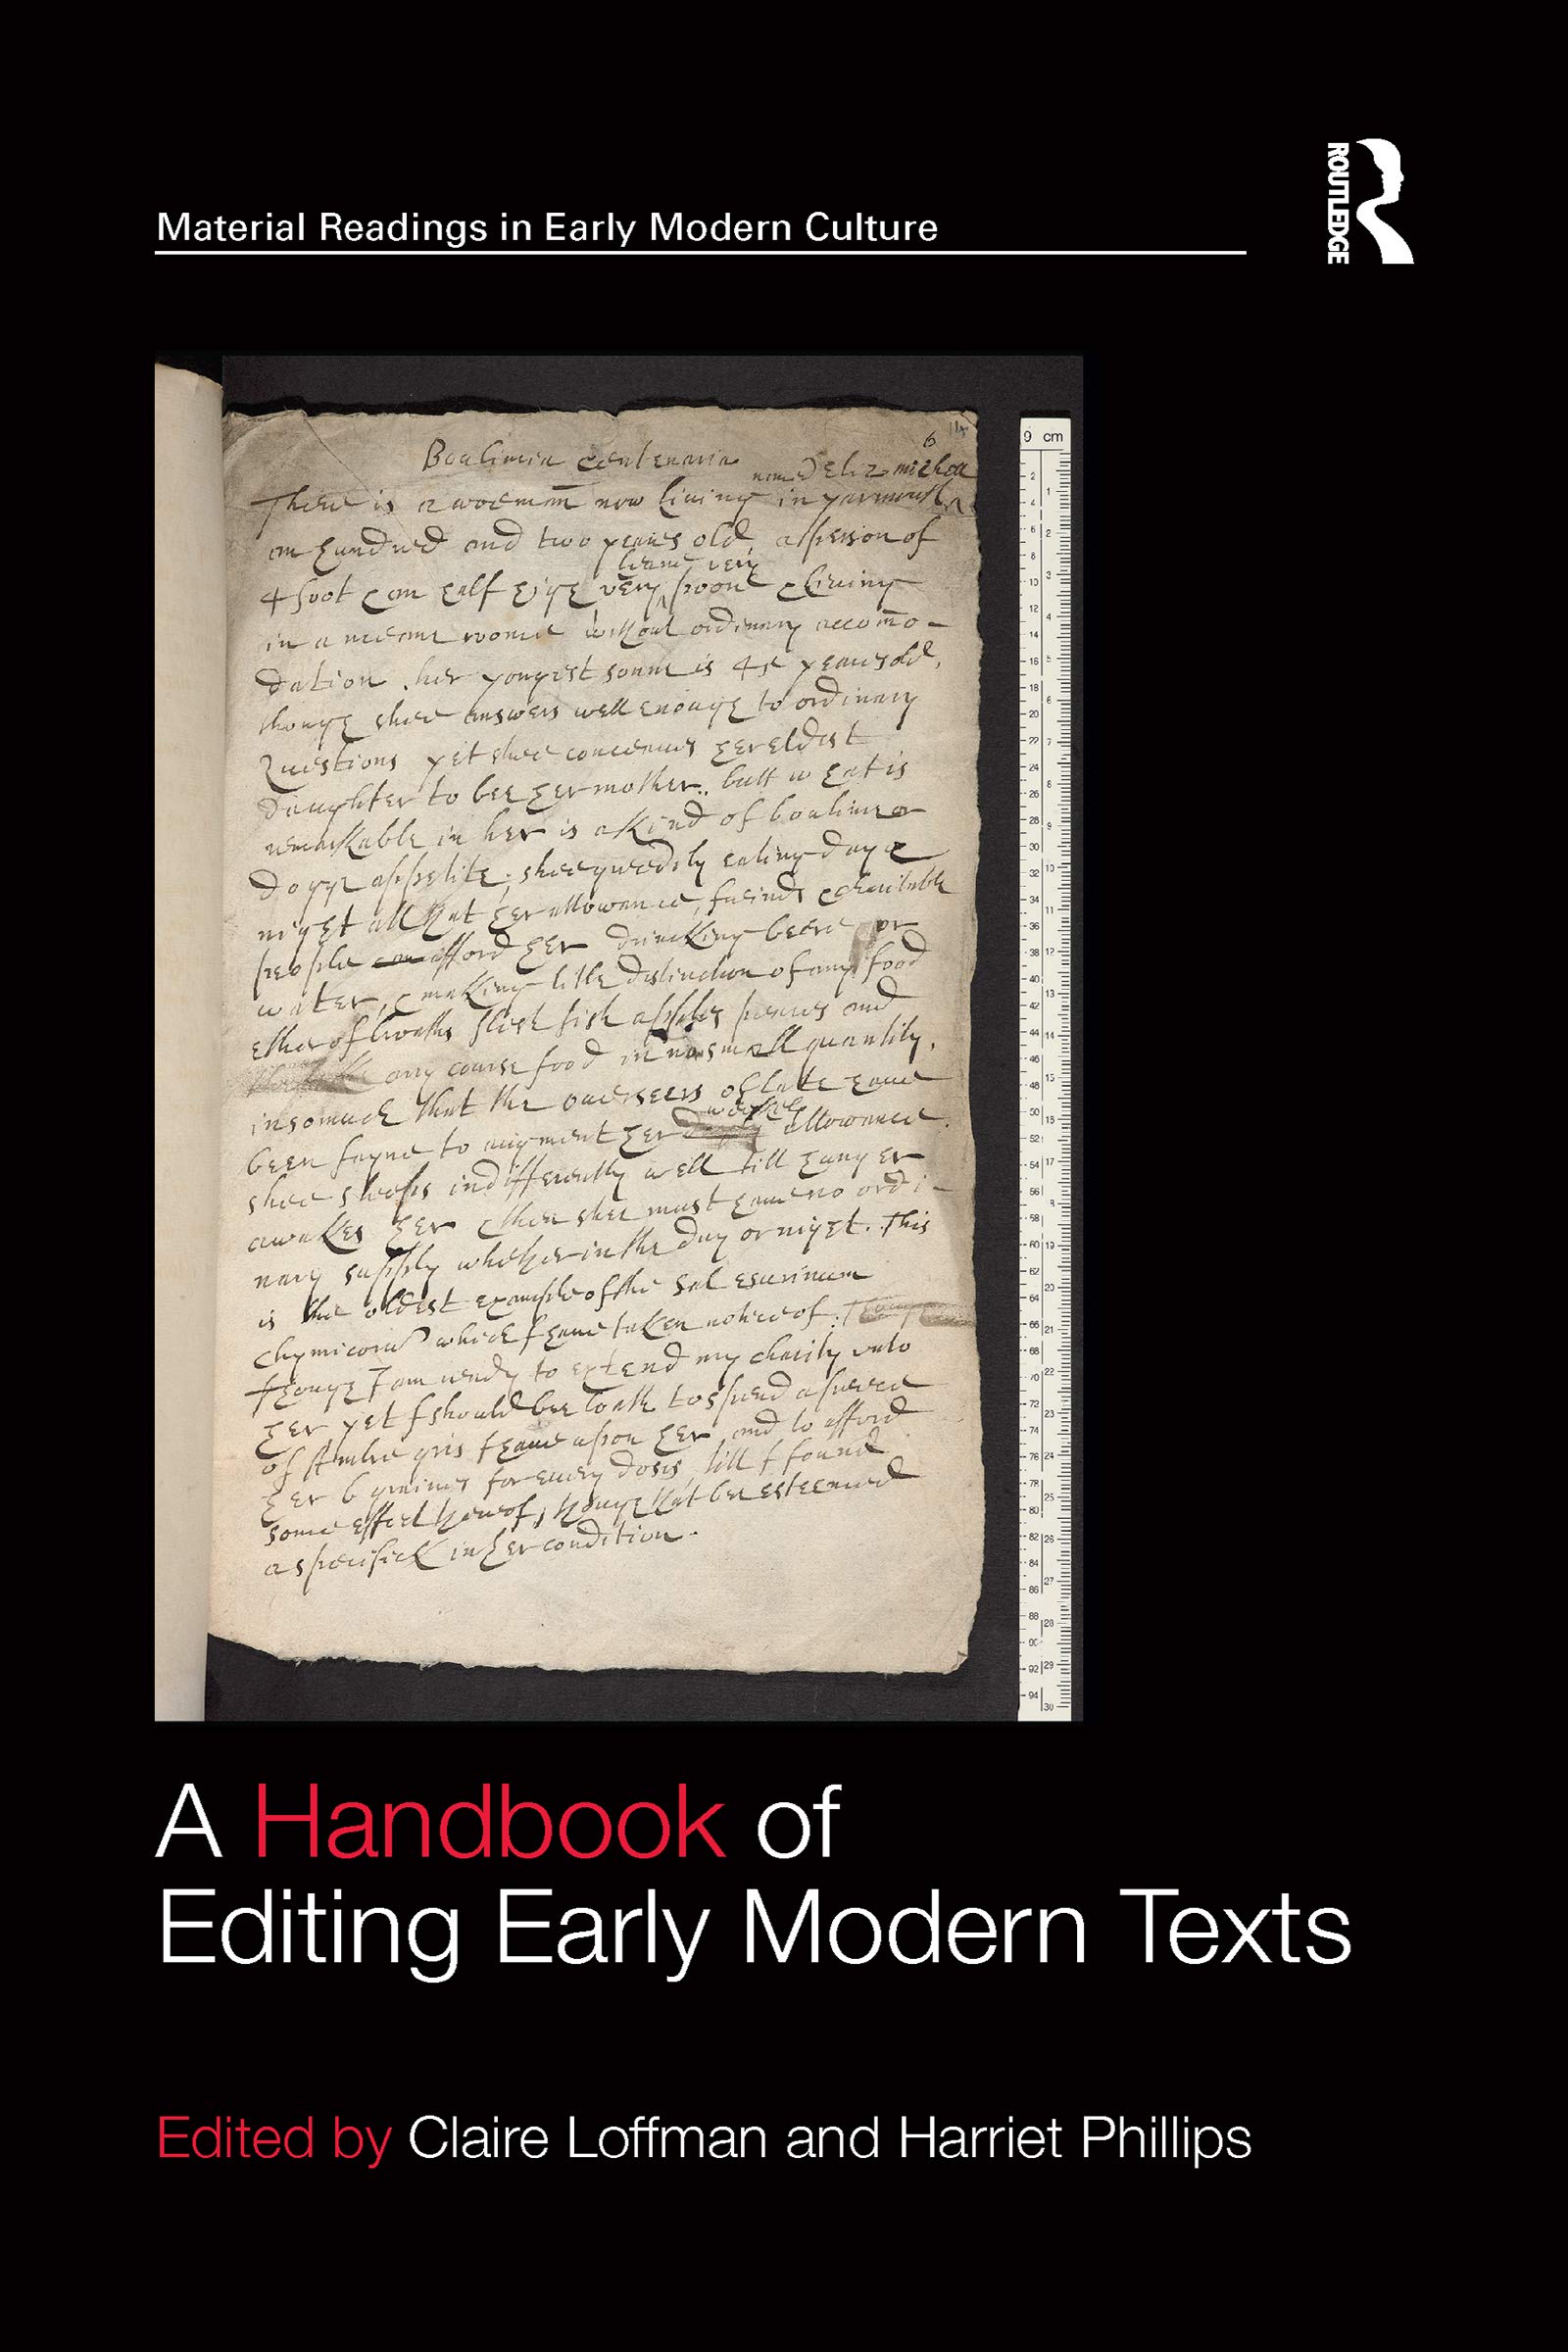 Material Readings in Early Modern Culture
ROUTLEDGE
6
9 cm
Boulimia Centenaria
named Eliz. michell
There is a woeman now liuing in yarmouth
an hundred and two yeares old, a person of
4 foot & an half hige very
leane very
poore & liuing
in a meane roome without ordinary accomo-
dation. her yongest sonne is 45 yeares old,
though shee answers well enough to ordinary
Questions yet shee conceaues her eldest
daughter to bee her mother. butt what is
remarkable in her is a kind of boulime or
dogge appetite; shee greedily eating day &
night all that her allowance, freinds & charitable
people afford her drincking beere or
water, & making litle distinction of any food
ether of broaths flesh fish apples peares and
any course food in no small quantity,
insomuch that the ouerseers of late haue
been fayne to augment her
weekely
allowance.
shee sleeps indifferently well till hunger
awakes her & then shee must haue no ordi-
nary supply whether in the day or night. This
is the oldest example of the Sal esurinum
chymicorum which I haue taken notice of.
though I am ready to extend my charity vnto
her yet I should bee loath to spend a peece
of Ambre gris I haue upon her, and to afford
her 6 graines for euery dosis, till I found
some effect thereof, though that bee esteemed
a specifick in her condition.
A Handbook of
Editing Early Modern Texts
Edited by Claire Loffman and Harriet Phillips